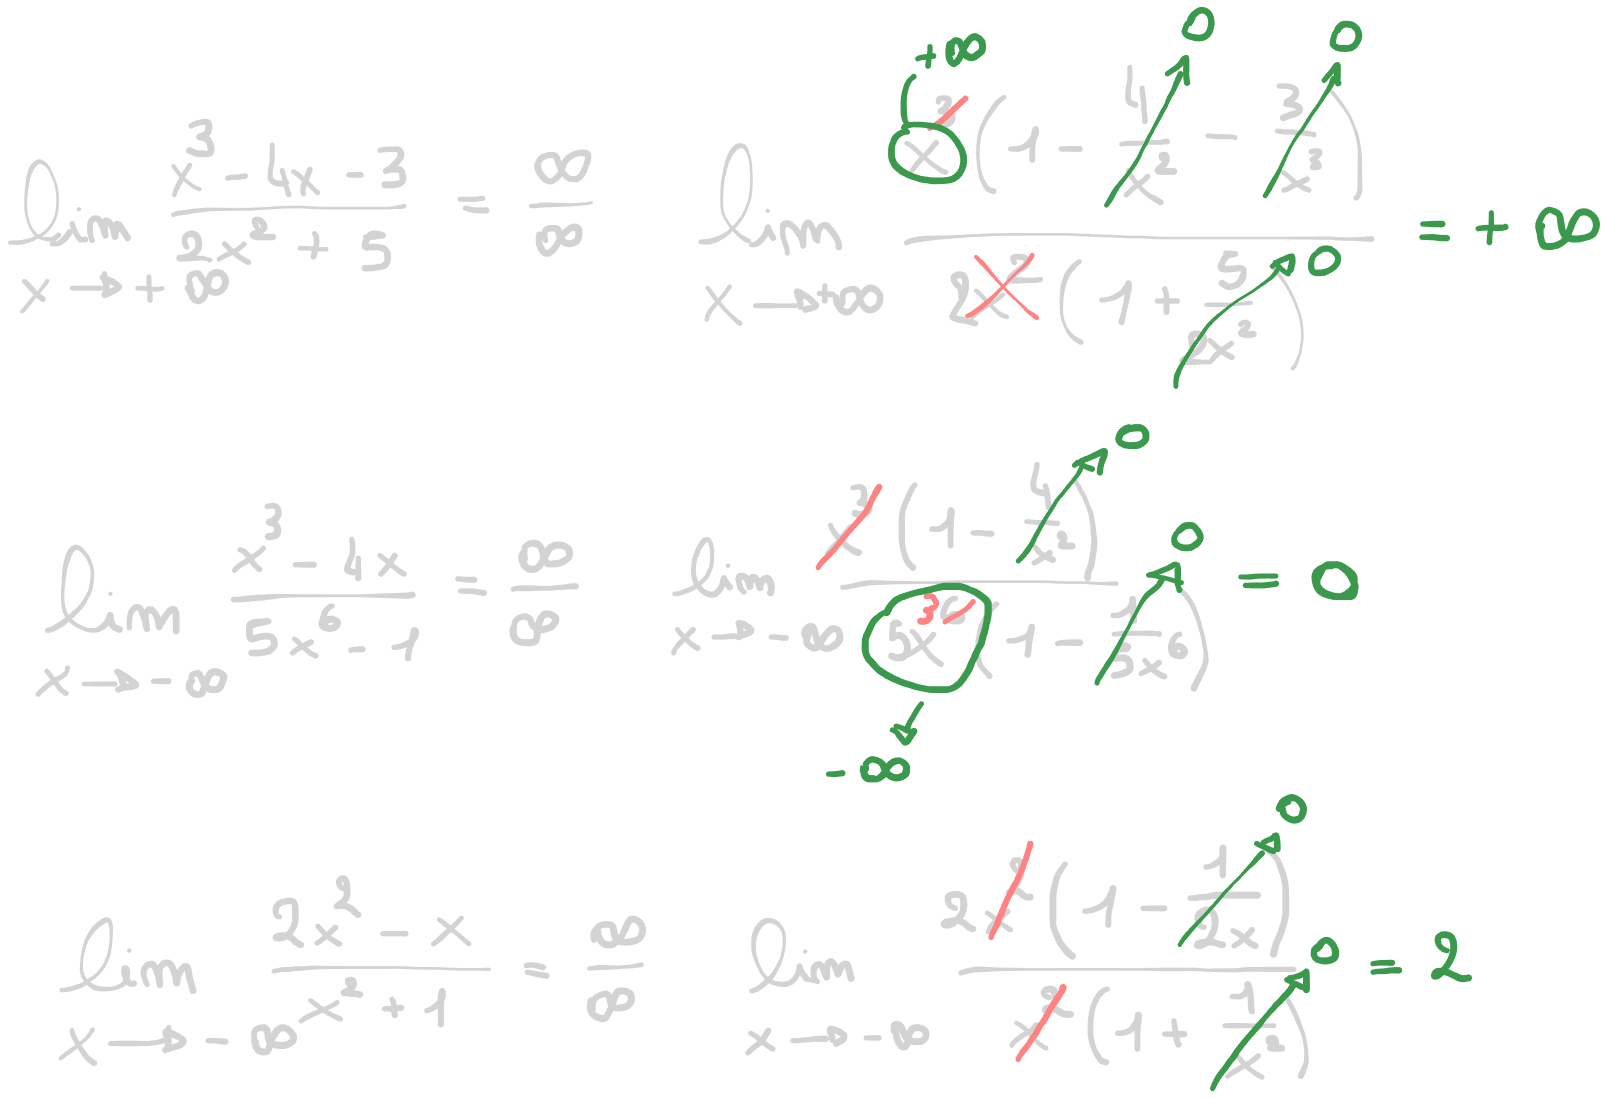 lim x→+∞ (x³ - 4x - 3)/(2x² + 5) = ∞/∞
lim x→+∞ x³ (1 - 4/x² - 3/x³) / 2x² (1 + 5/2x²) = +∞
+∞ 0 0 0
lim x→-∞ (x³ - 4x)/(5x⁶ - 1) = ∞/∞
lim x→-∞ x³ (1 - 4/x²) / 5x⁶ (1 - 1/5x⁶) = 0
0 0 3 -∞
lim x→-∞ (2x² - x)/(x² + 1) = ∞/∞
lim x→-∞ 2x² (1 - 1/2x) / x² (1 + 1/x²) = 2
0 0